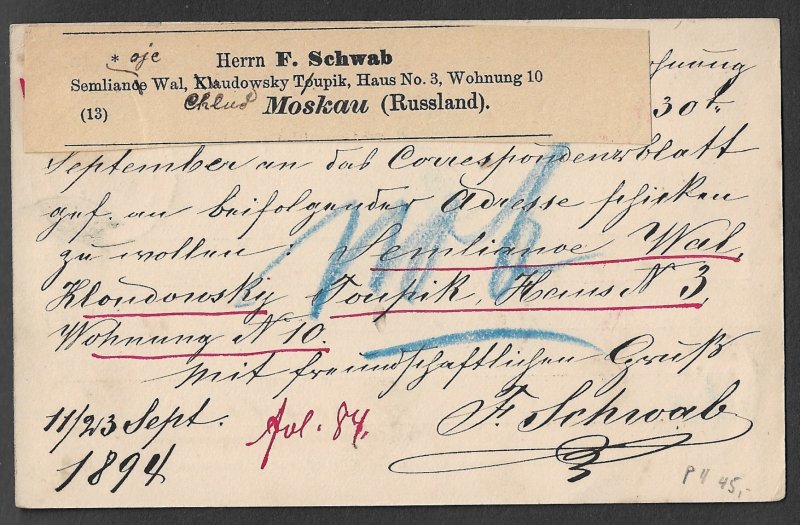 * oje Herrn F. Schwab
Semlianoe Wal, Klaudowsky Toupik, Haus No. 3, Wohnung 10
(13) Chlud Moskau (Russland).
30t
September an das Correspondenzblatt
gef. an beifolgender Adresse schicken
zu wollen: Semlianoe Wal,
Kloudowsky Toupik, Haus N 3,
Wohnung N 10.
Mit freundschaftlichen Gruß
11/23 Sept. fol. 84. F. Schwab
1894
45,-